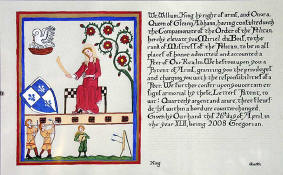 We, William, King by right of arms, and Onora,
Queen of Glenn Abhann, having consulted with
the Companions of the Order of the Pelican
hereby elevate you Muriel du Bois, to the
rank of Mistress of the Pelican, to be in all
places of honor admitted and accounted a
Peer of Our Realm. We bestow upon you a
Patent of Arms, granting you the privileges
and charging you with the responsibilities of a
Peer. We further confer upon you our en-
sign armorial by these Letters Patent, to
wit: Quarterly argent and azure, three
within a bordure counterchanged.
Given by Our hand this 26th day of April in
the year XLII, being 2008 Gregorian.
King